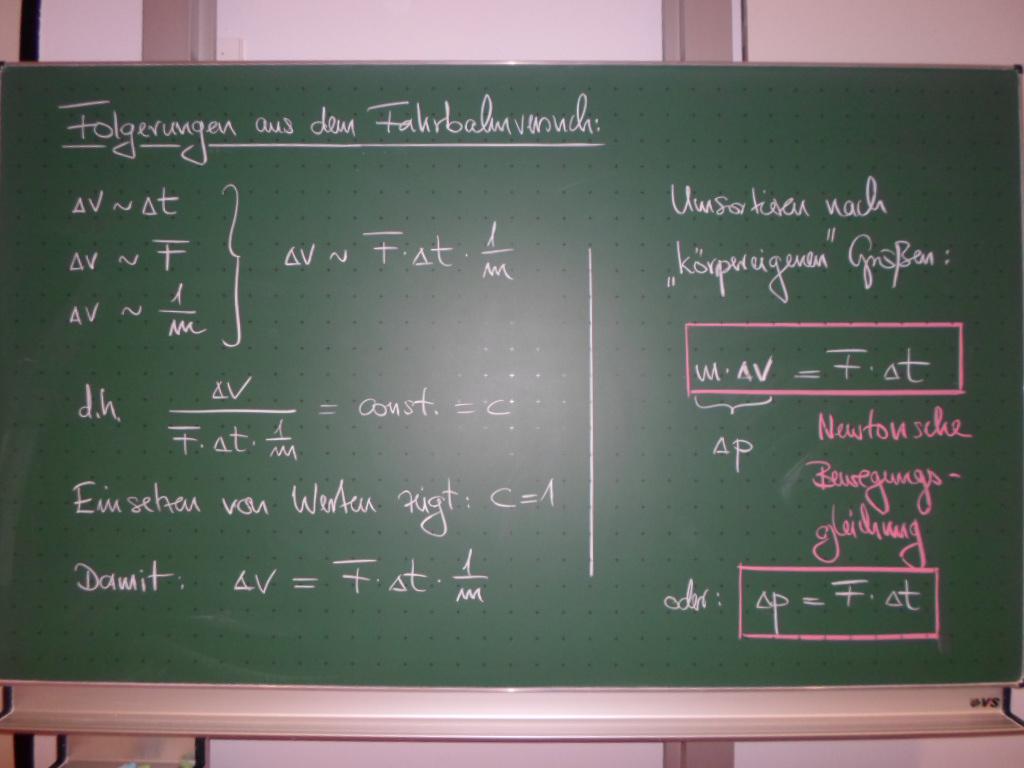 Folgerungen aus dem Fahrbahnversuch:
Δv ~ Δt
Δv ~ F
Δv ~ 1/m
Δv ~ F · Δt · 1/m
d.h. Δv / (F · Δt · 1/m) = const. = c
Einsetzen von Werten zeigt: c = 1
Damit: Δv = F · Δt · 1/m
Umsortieren nach
„körpereigenen" Größen:
m · Δv = F · Δt
Δp
Newtonsche
Bewegungs-
gleichung
oder: Δp = F · Δt
VS